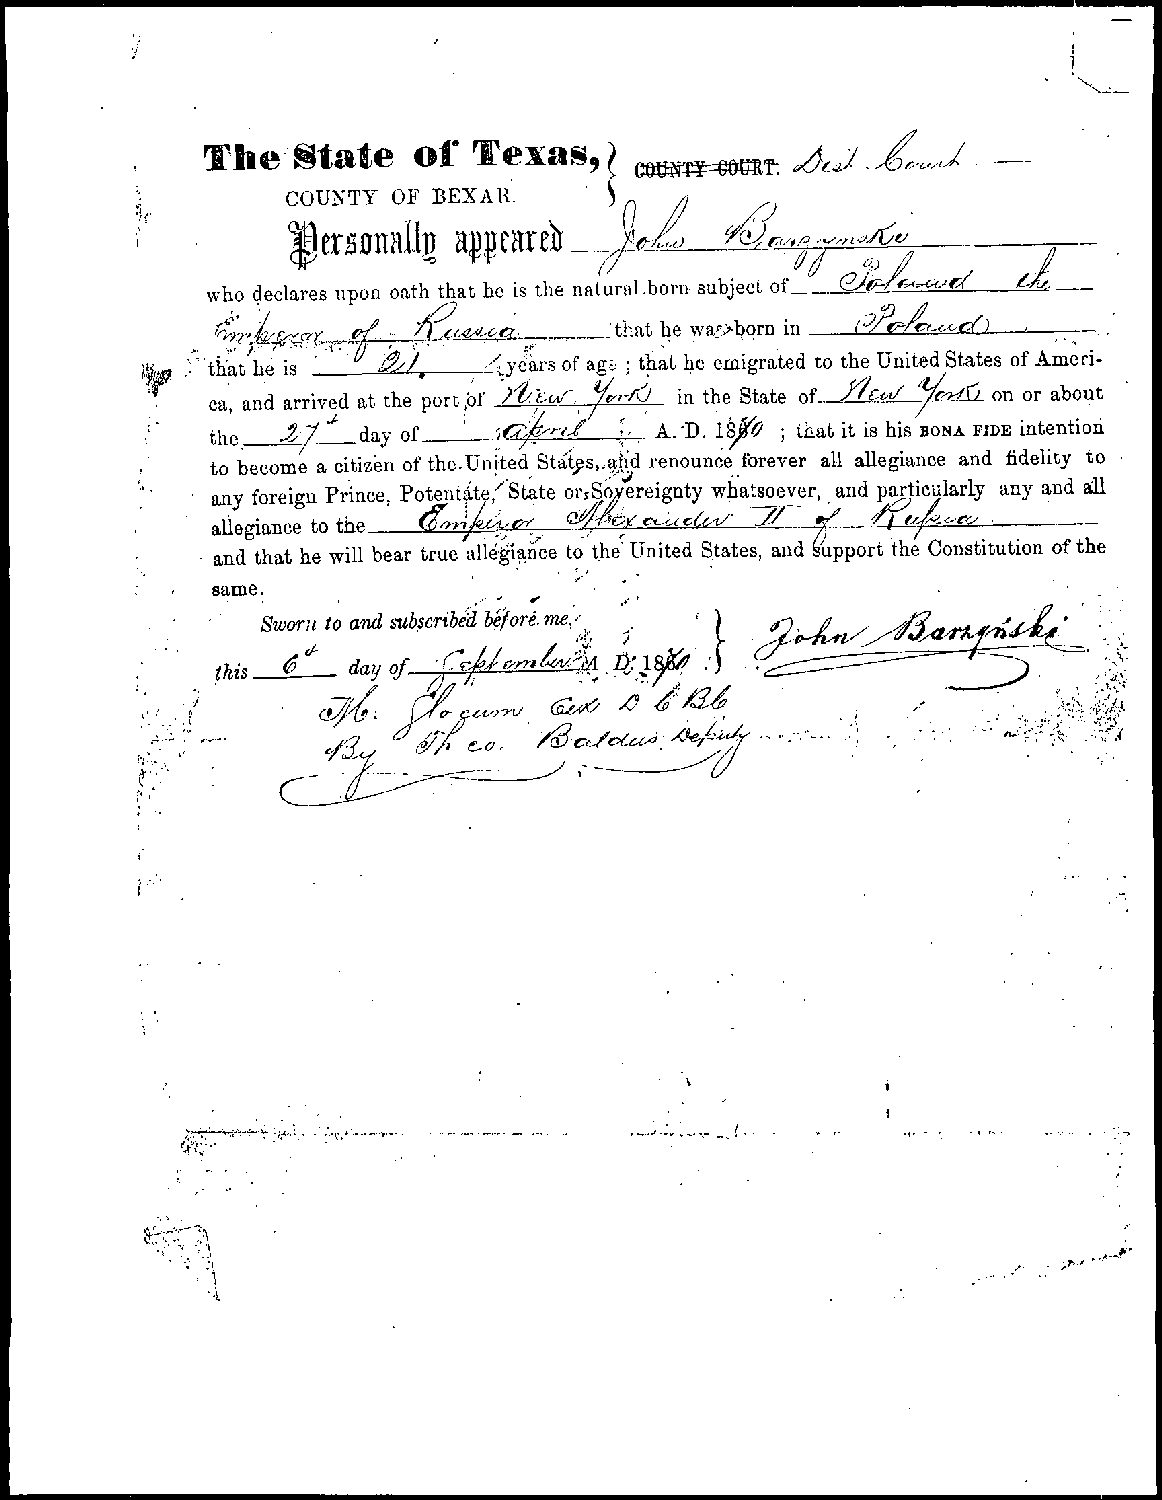 The State of Texas, } COUNTY COURT. Dist. Court
COUNTY OF BEXAR.
Personally appeared John Barzynski
who declares upon oath that he is the natural born subject of Poland the
Emperor of Russia that he was born in Poland
that he is 21. years of age ; that he emigrated to the United States of Ameri-
ca, and arrived at the port of New York in the State of New York on or about
the 27th day of April A. D. 1870 ; that it is his BONA FIDE intention
to become a citizen of the United States, and renounce forever all allegiance and fidelity to
any foreign Prince, Potentate, State or Sovereignty whatsoever, and particularly any and all
allegiance to the Emperor Alexander II of Russia
and that he will bear true allegiance to the United States, and support the Constitution of the
same.
Sworn to and subscribed before me, } John Barzyński
this 6th day of September A D. 1870
Slocum Clk D C B C
By Theo. Baldus Deputy